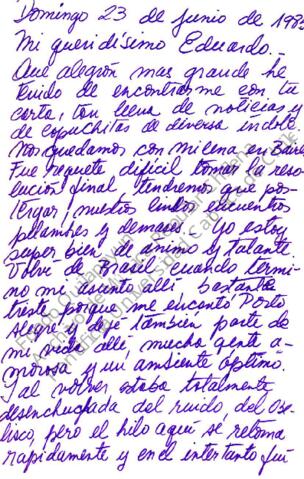 Domingo 23 de Junio de 198
Mi queridísimo Eduardo.-
Que alegrón mas grande he
tenido de encontrarme con tu
carta, tan llena de noticias y
de copuchitas de diversa índole
Nos quedamos con milena en Baires
Fue requete difícil tomar la reso-
lución final, tendremos que pos-
tergar, nuestros lindos encuentros
pelambres y demases.- Yo estoy
super bien de ánimo y talante.
Volví de Brasil cuando termi-
nó mi asunto allí bastante
triste porque me encantó Porto
Alegre y dejé también parte de
mi vida allí, mucha gente a-
morosa y un ambiente óptimo.
Y al volver estaba totalmente
desenchufada del ruido, del obe-
lisco, pero el hilo aquí se retoma
rapidamente y en el intertanto fui